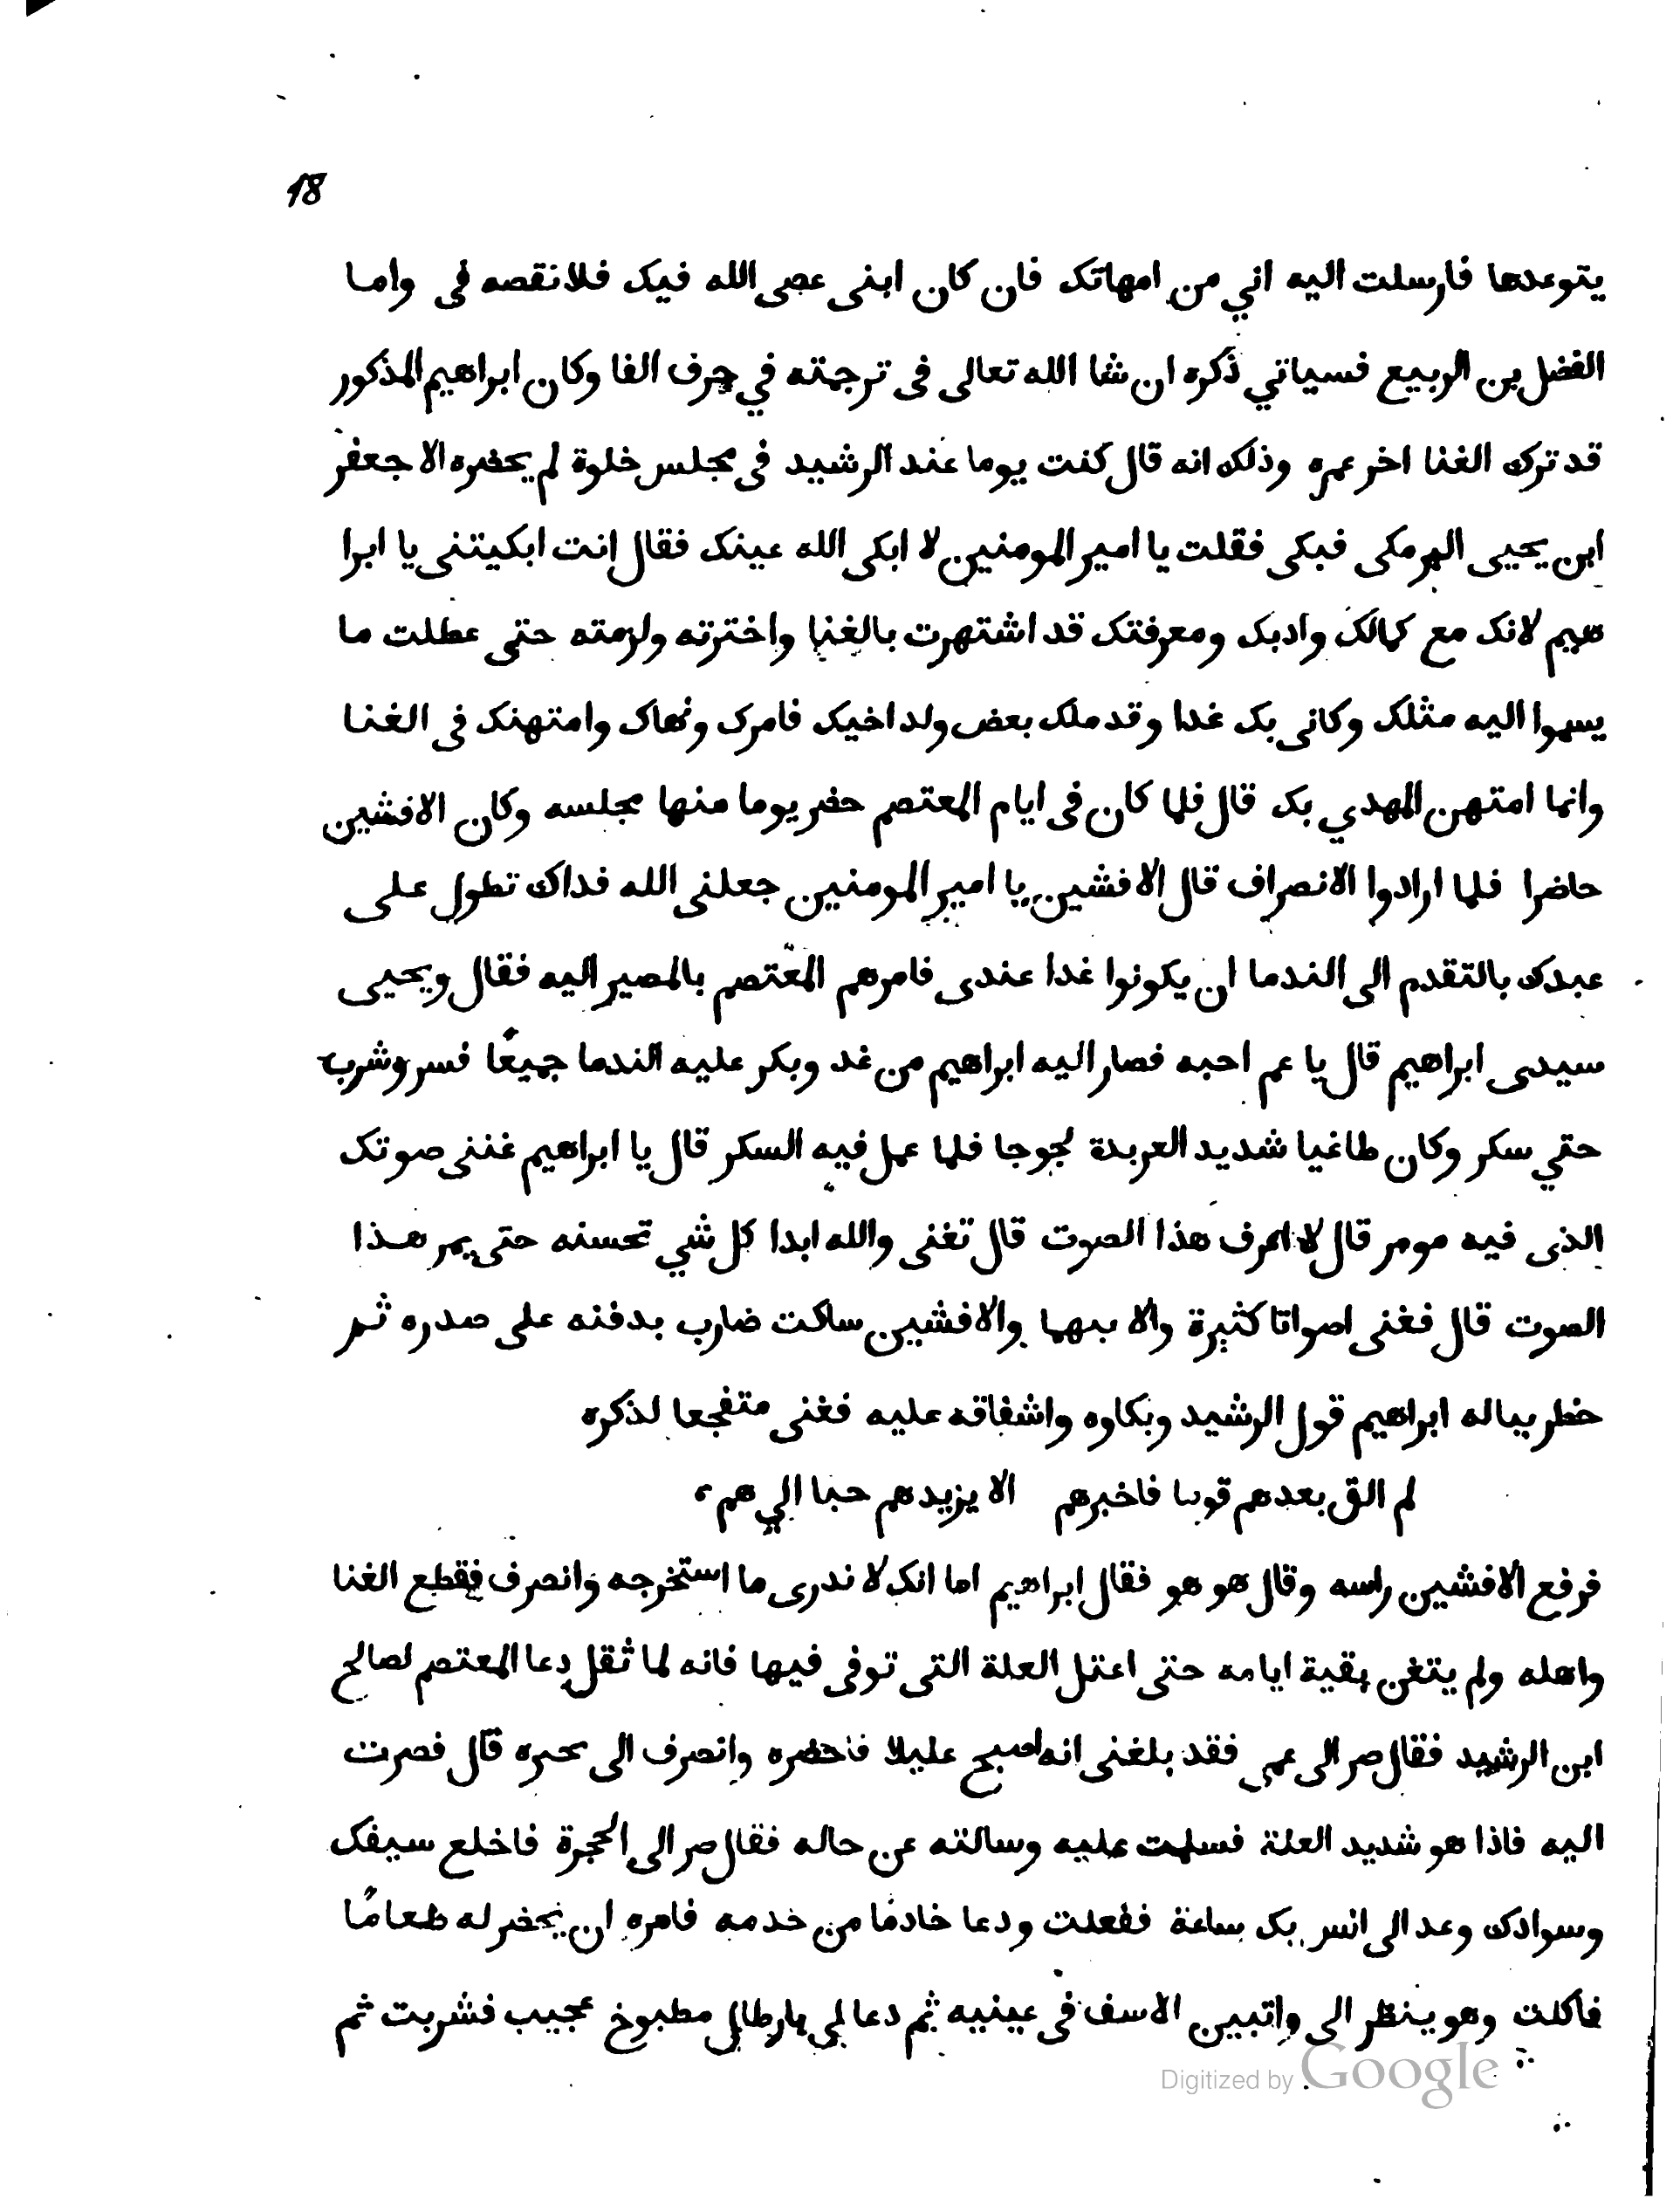 18
يتوعدها فارسلت اليه اني من امهاتك فان كان ابنى عصى الله فيك فلا نقصه فى واما
الفضل بن الربيع فسياتي ذكره ان شا الله تعالى فى ترجمته في حرف الفا وكان ابراهيم المذكور
قد ترك الغنا اخر عمره وذلك انه قال كنت يوما عند الرشيد فى مجلس خلوة لم يحضره الا جعفر
ابن يحيى البرمكى فبكى فقلت يا امير المومنين لا ابكى الله عينك فقال انت ابكيتنى يا ابرا
هيم لانك مع كمالك وادبك ومعرفتك قد اشتهرت بالغنا واخترته ولزمته حتى عطلت ما
يسموا اليه مثلك وكانى بك غدا وقد ملك بعض ولد اخيك فامرك ونهاك وامتهنك فى الغنا
وانما امتهن المهدي بك قال فلما كان فى ايام المعتصم حضر يوما منها مجلسه وكان الافشين
حاضرا فلما ارادوا الانصراف قال الافشين يا امير المومنين جعلنى الله فداك تطول على
عبدك بالتقدم الى الندما ان يكونوا غدا عندى فامرهم المعتصم بالمصير اليه فقال ويحيى
سيدى ابراهيم قال يا عم احبه فصار اليه ابراهيم من غد وبكر عليه الندما جميعًا فسر وشرب
حتي سكر وكان طاغيا شديد العربدة لجوجا فلما عمل فيه السكر قال يا ابراهيم غننى صوتك
الذى فيه مومر قال لا اعرف هذا الصوت قال تغنى والله ابدا كل شي تحسنه حتى يمر هذا
الصوت قال فغنى اصواتا كثيرة والافشين ساكت ضارب بدفنه على صدره ثم
خطر بباله ابراهيم قول الرشيد وبكاوه واشفاقه عليه فغنى متفجعا لذكره
لم الق بعدهم قوما فاخبرهم الا يزيدهم حبا الي هم
فرفع الافشين راسه وقال هو هو فقال ابراهيم اما انك لا ندرى ما استخرجه وانصرف فقطع الغنا
واهله ولم يتغن بقية ايامه حتى اعتل العلة التى توفى فيها فانه لما ثقل دعا المعتصم لصالح
ابن الرشيد فقال صر الى عمى فقد بلغنى انه اصبح عليلا فاحضره وانصرف الى قال فصرت
اليه فاذا هو شديد العلة فسلمت عليه وسالته عن حاله فقال صر الى الحجرة فاخلع سيفك
وسوادك وعد الى انس بك ساعة ففعلت ودعا خادمًا من خدمه فامره ان يحضر له طعامًا
فاكلت وهو ينظر الى واتبين الاسف فى عينيه ثم دعا لي بارطال مطبوخ عجيب فشربت ثم
Digitized by Google